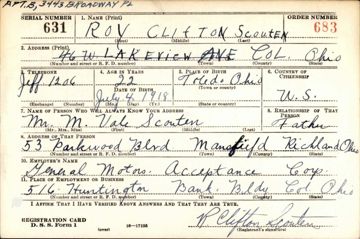 APT. B, 3443 BROADWAY PL
SERIAL NUMBER 1. NAME (Print) ORDER NUMBER
631 ROY CLIFTON SCOUTEN 683
(First) (Middle) (Last)
2. ADDRESS (Print)
46 W LAKEVIEW AVE Col. Ohio
(Number and street or R. F. D. number) (Town) (County) (State)
3. TELEPHONE 4. AGE IN YEARS 5. PLACE OF BIRTH 6. COUNTRY OF CITIZENSHIP
Jeff 1206 22 Toledo Ohio
DATE OF BIRTH
July 4 1918 U.S.
(Exchange) (Number) (Mo.) (Day) (Yr.) (State or country)
7. NAME OF PERSON WHO WILL ALWAYS KNOW YOUR ADDRESS 8. RELATIONSHIP OF THAT PERSON
Mr. M. Vale Scouten Father
(Mr., Mrs., Miss) (First) (Middle) (Last)
9. ADDRESS OF THAT PERSON
53 Parkwood Blvd Mansfield Richland Ohio
(Number and street or R. F. D. number) (Town) (County) (State)
10. EMPLOYER'S NAME
General Motors Acceptance Corp.
11. PLACE OF EMPLOYMENT OR BUSINESS
516 Huntington Bank Bldg Col. Ohio
(Number and street or R. F. D. number) (Town) (County) (State)
I AFFIRM THAT I HAVE VERIFIED ABOVE ANSWERS AND THAT THEY ARE TRUE.
REGISTRATION CARD
D. S. S. Form 1 R Clifton Scouten
(Registrant's signature)